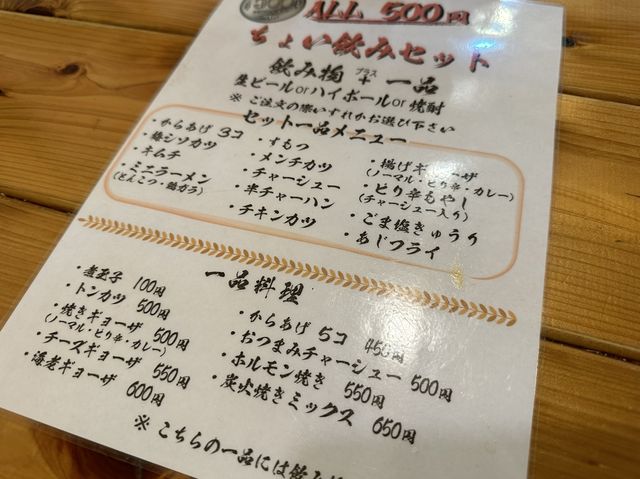 ALL 500円
ちょい飲みセット
飲み物 プラス + 一品
生ビールorハイボールor焼酎
※ご注文の際いずれかお選び下さい
セット一品メニュー
・からあげ 3コ
・梅シソカツ
・キムチ
・ミニラーメン
(とんこつ・鶏ガラ)
・すもつ
・メンチカツ
・チャーシュー
・半チャーハン
・チキンカツ
・揚げギョーザ
(ノーマル・ピリ辛・カレー)
・ピリ辛もやし
(チャーシュー入り)
・ごま塩きゅうり
・あじフライ
一品料理
・煮玉子 100円
・トンカツ 500円
・焼きギョーザ 500円
(ノーマル・ピリ辛・カレー)
・チーズギョーザ 550円
・海老ギョーザ 600円
・からあげ 5コ 450円
・おつまみチャーシュー 500円
・ホルモン焼き 550円
・炭火焼きミックス 650円
※こちらの一品には飲み